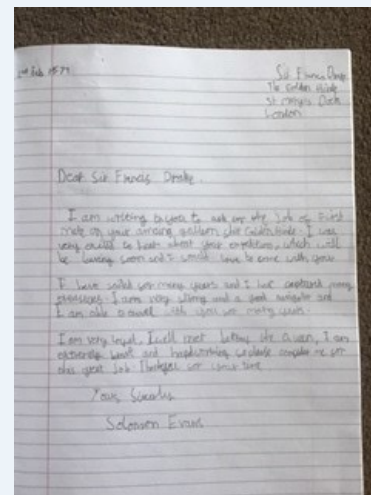 Feb 1577
Sir Francis Drake
The Golden Hinde
St Marys Dock
London
Dear Sir Francis Drake.
I am writing to you to ask for the job of First
mate on your amazing galleon the Golden Hinde. I was
very excited to hear about your expedition, which will
be leaving soon and I would love to come with you.
I have sailed for many years and I have captured many
I am very strong and a good navigator and
I am able to travel with you for many years.
I am very loyal. I will not betray the Queen, I am
extremely and hardworking so please consider me for
this great job. for your time
Yours
Solomon Evans